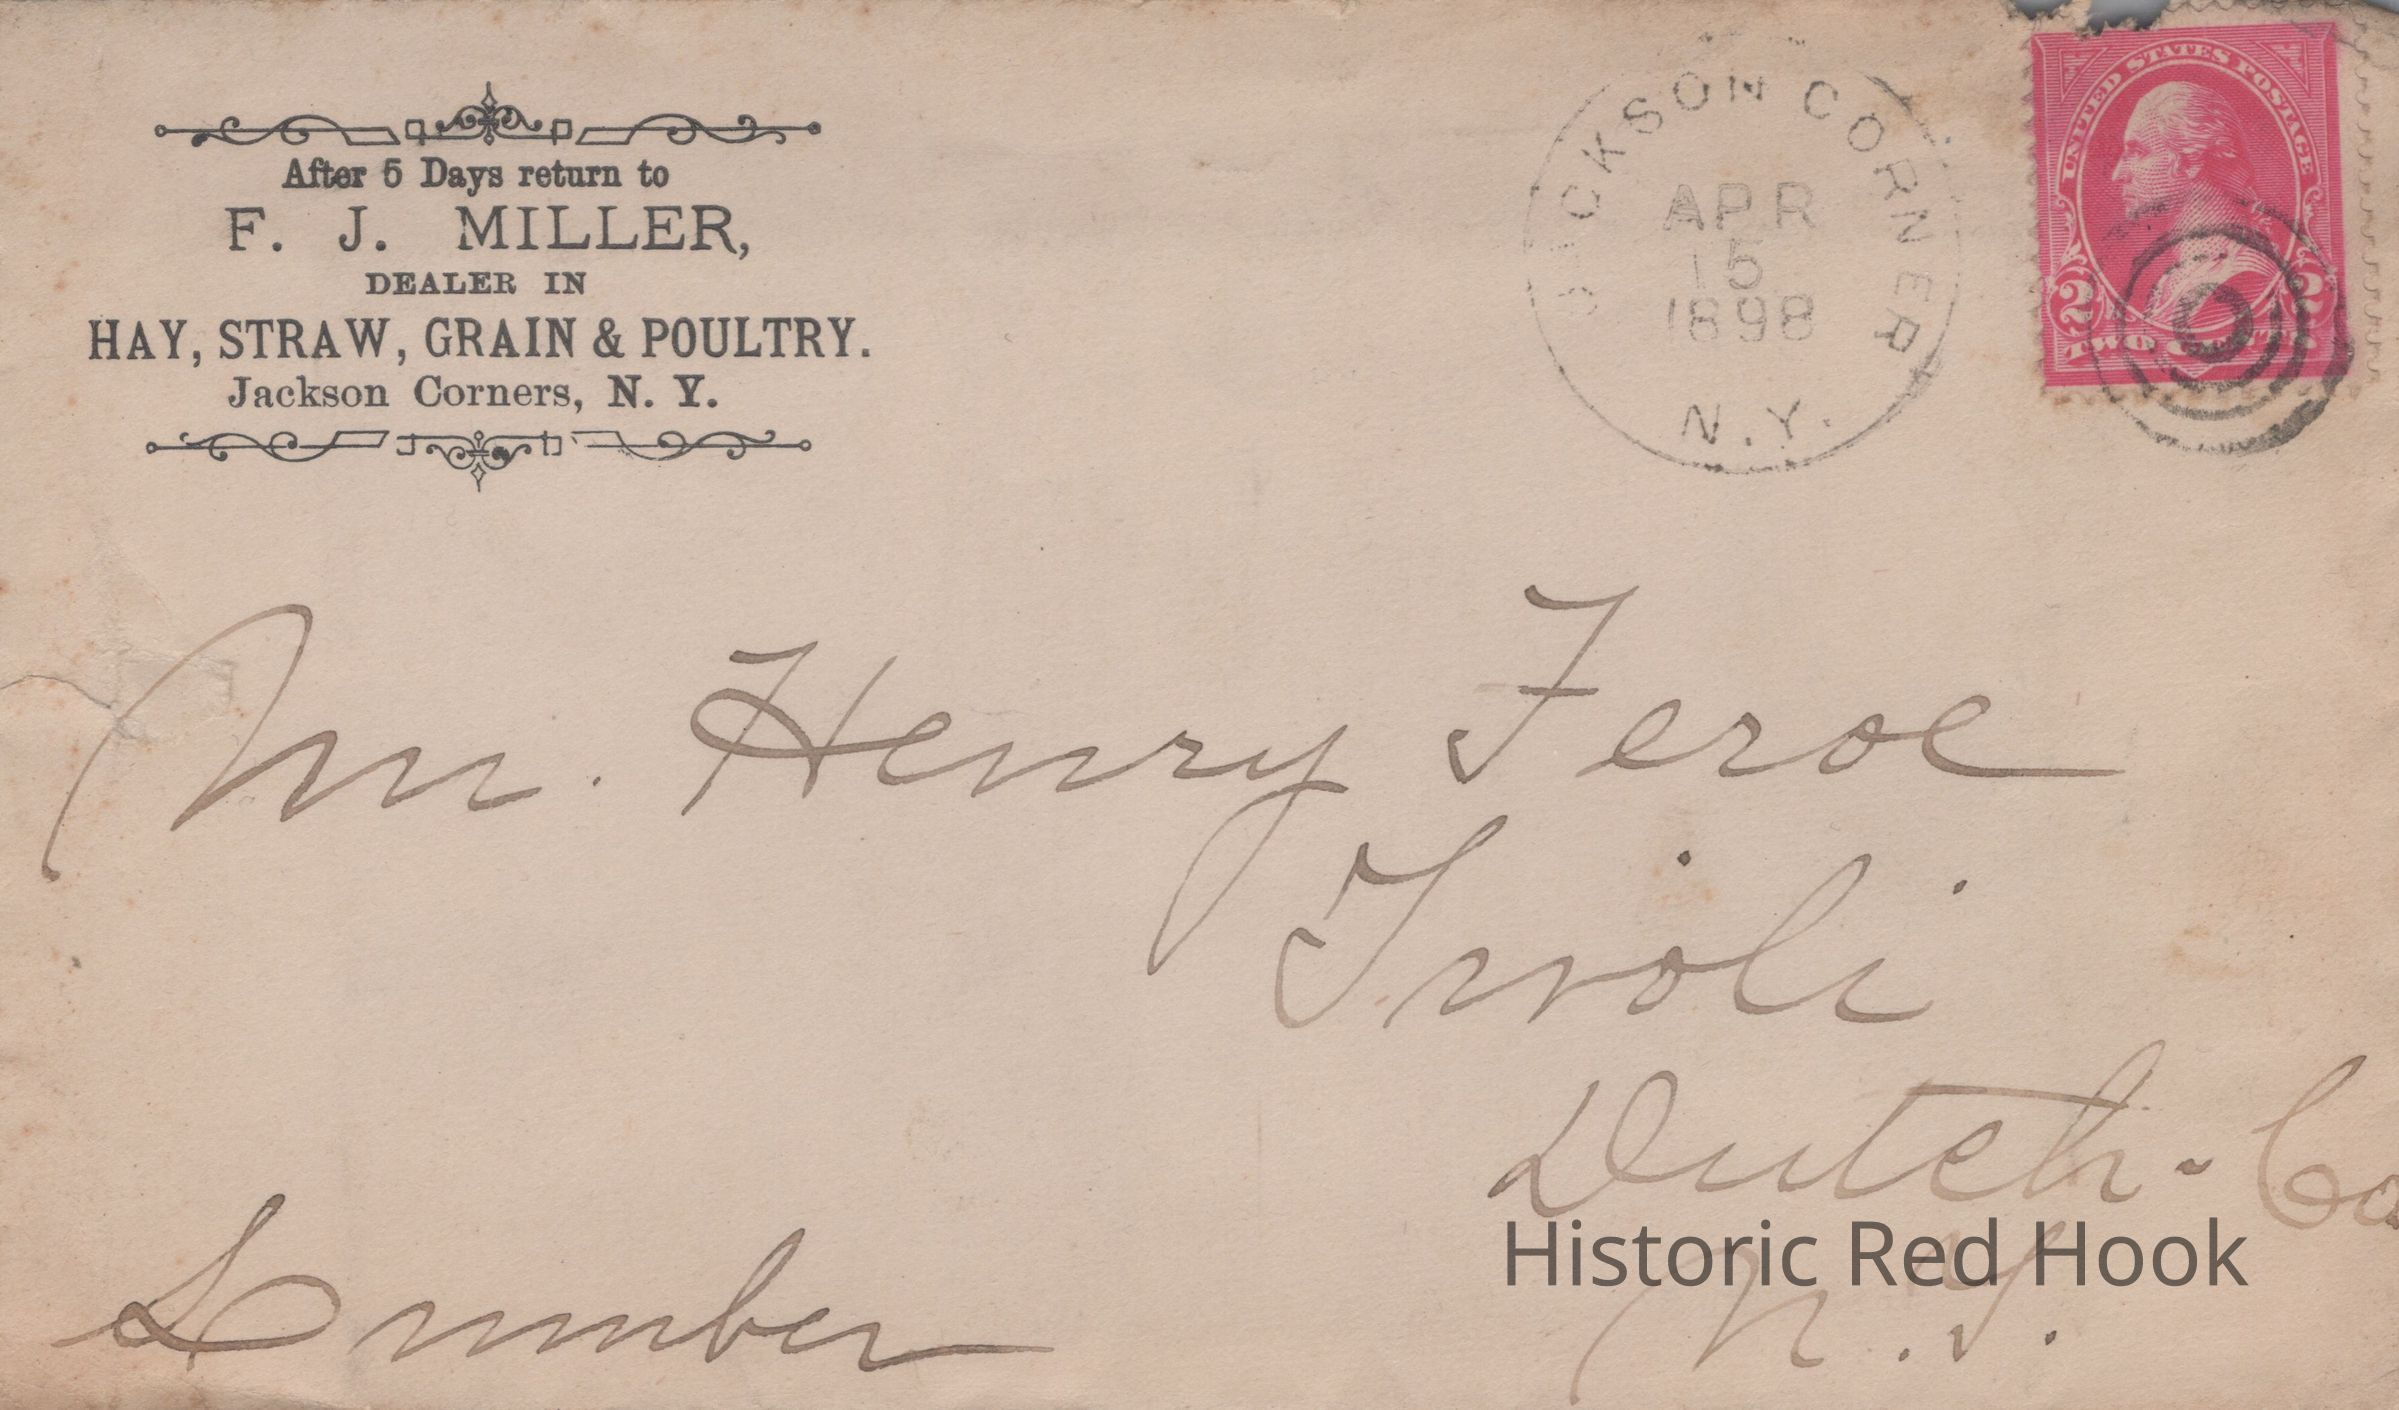 After 5 Days return to
F. J. MILLER,
DEALER IN
HAY, STRAW, GRAIN & POULTRY.
Jackson Corners, N. Y.
JACKSON CORNERS
APR
15
1898
N.Y.
UNITED STATES POSTAGE
2 2
TWO CENTS
Mr. Henry Feroe
Tivoli
Dutch. Co
N.Y.
Lumber
Historic Red Hook